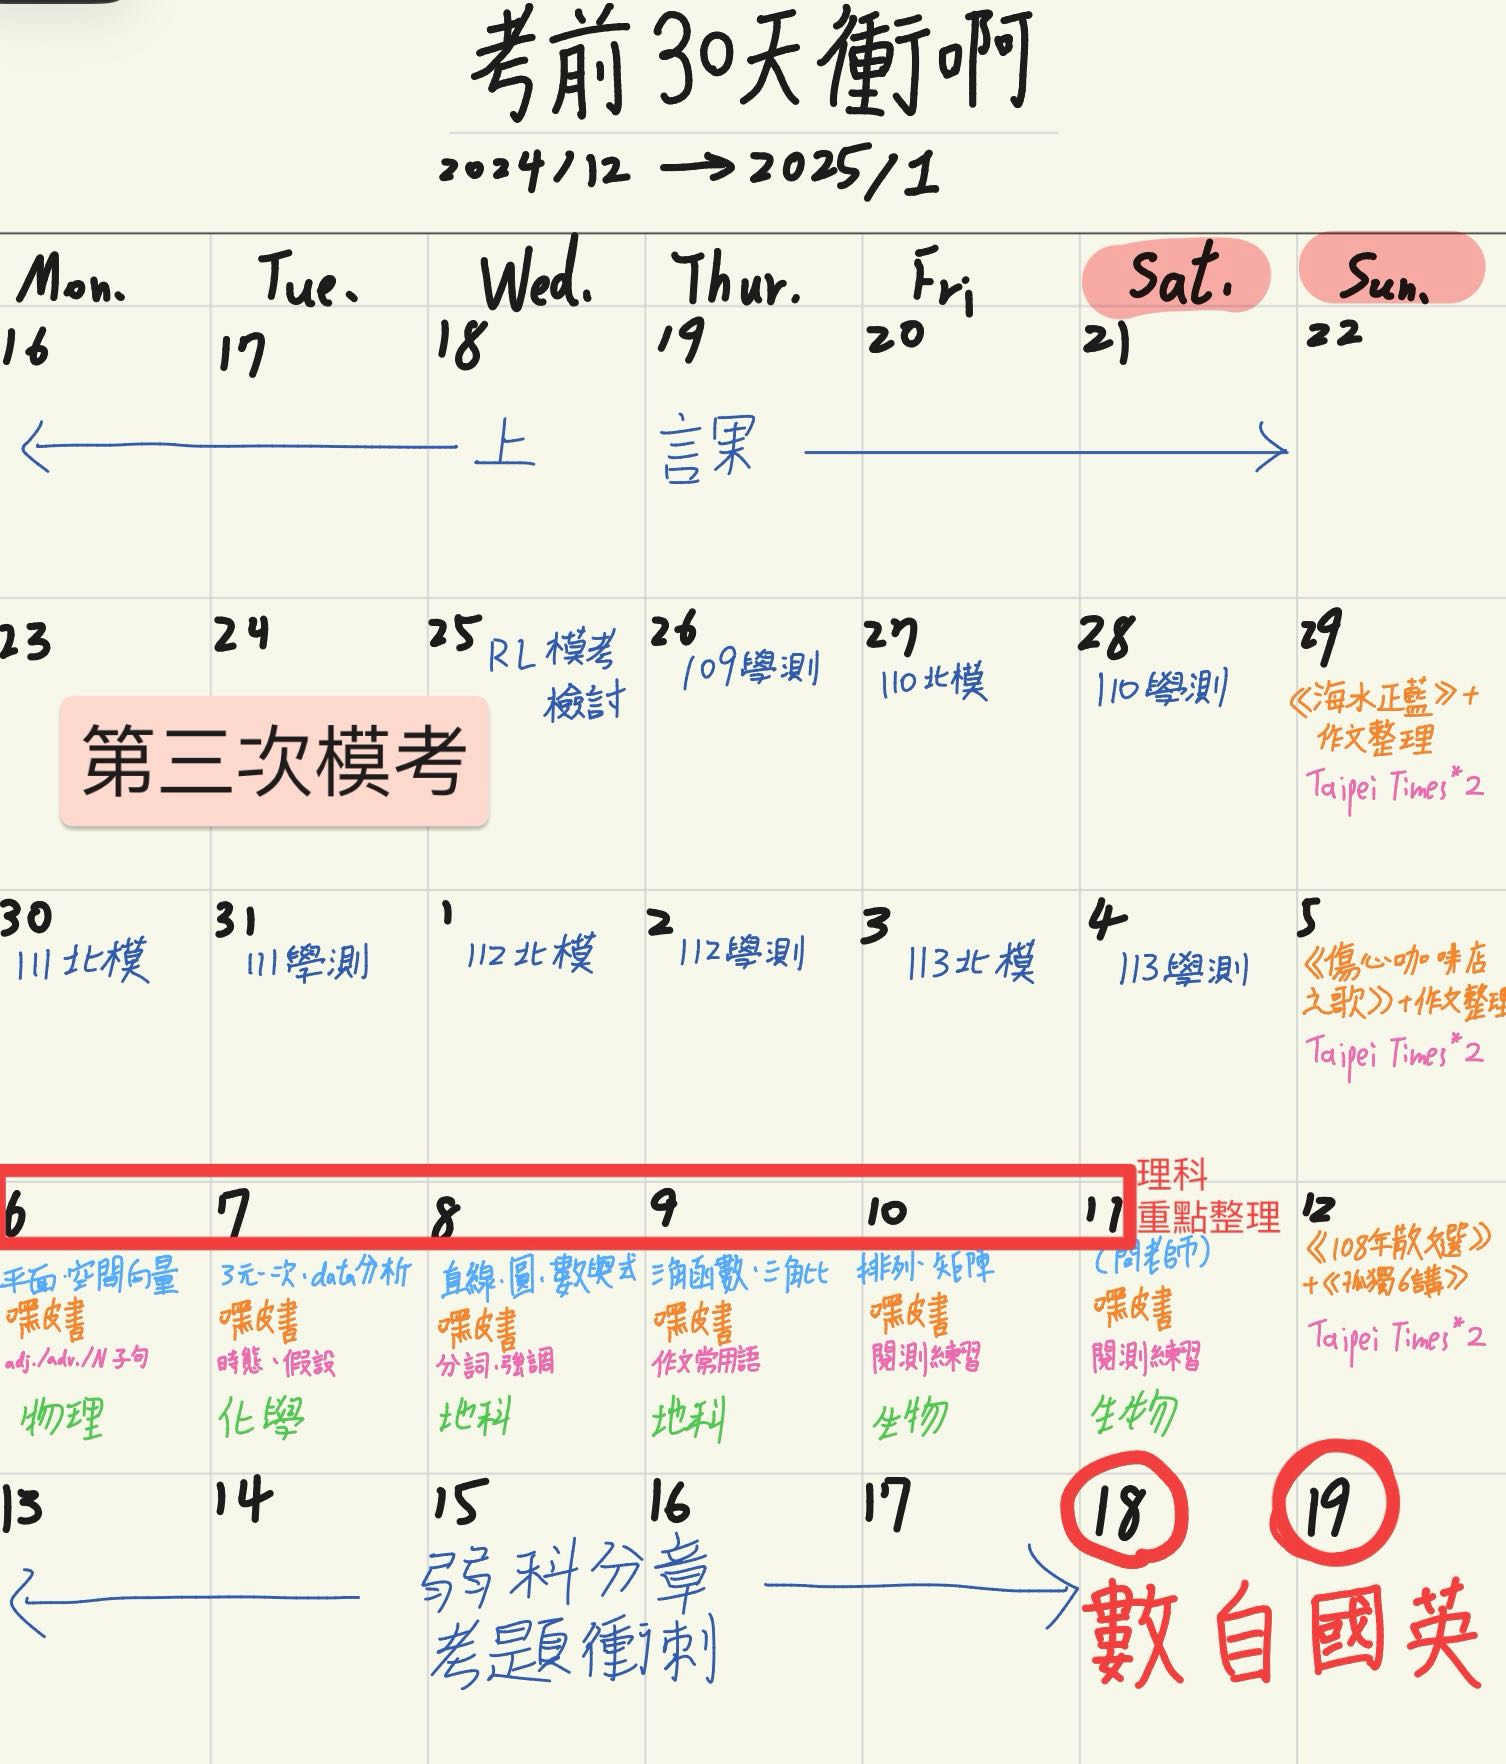 考前30天衝啊
2024/12 → 2025/1
Mon. Tue. Wed. Thur. Fri Sat. Sun.
16 17 18 19 20 21 22
← 上 課 →
23 24 25 26 27 28 29
RL模考 109學測 110北模 110學測 《海水正藍》+
檢討 作文整理
第三次模考 Taipei Times*2
30 31 1 2 3 4 5
111北模 111學測 112北模 112學測 113北模 113學測 《傷心咖啡店
之歌》+作文整理
Taipei Times*2
理科
重點整理
6 7 8 9 10 11 12
平面·空間向量 3元一次·data分析 直線·圓·數與式 三角函數·三角比 排列·矩陣 (問老師) 《108年散文選》
+《孤獨6講》
嘿皮書 嘿皮書 嘿皮書 嘿皮書 嘿皮書 嘿皮書 Taipei Times*2
adj./adv./N子句 時態·假設 分詞·強調 作文常用語 閱測練習 閱測練習
物理 化學 地科 地科 生物 生物
13 14 15 16 17 18 19
← 弱科分章 →
考題衝刺
數自國英